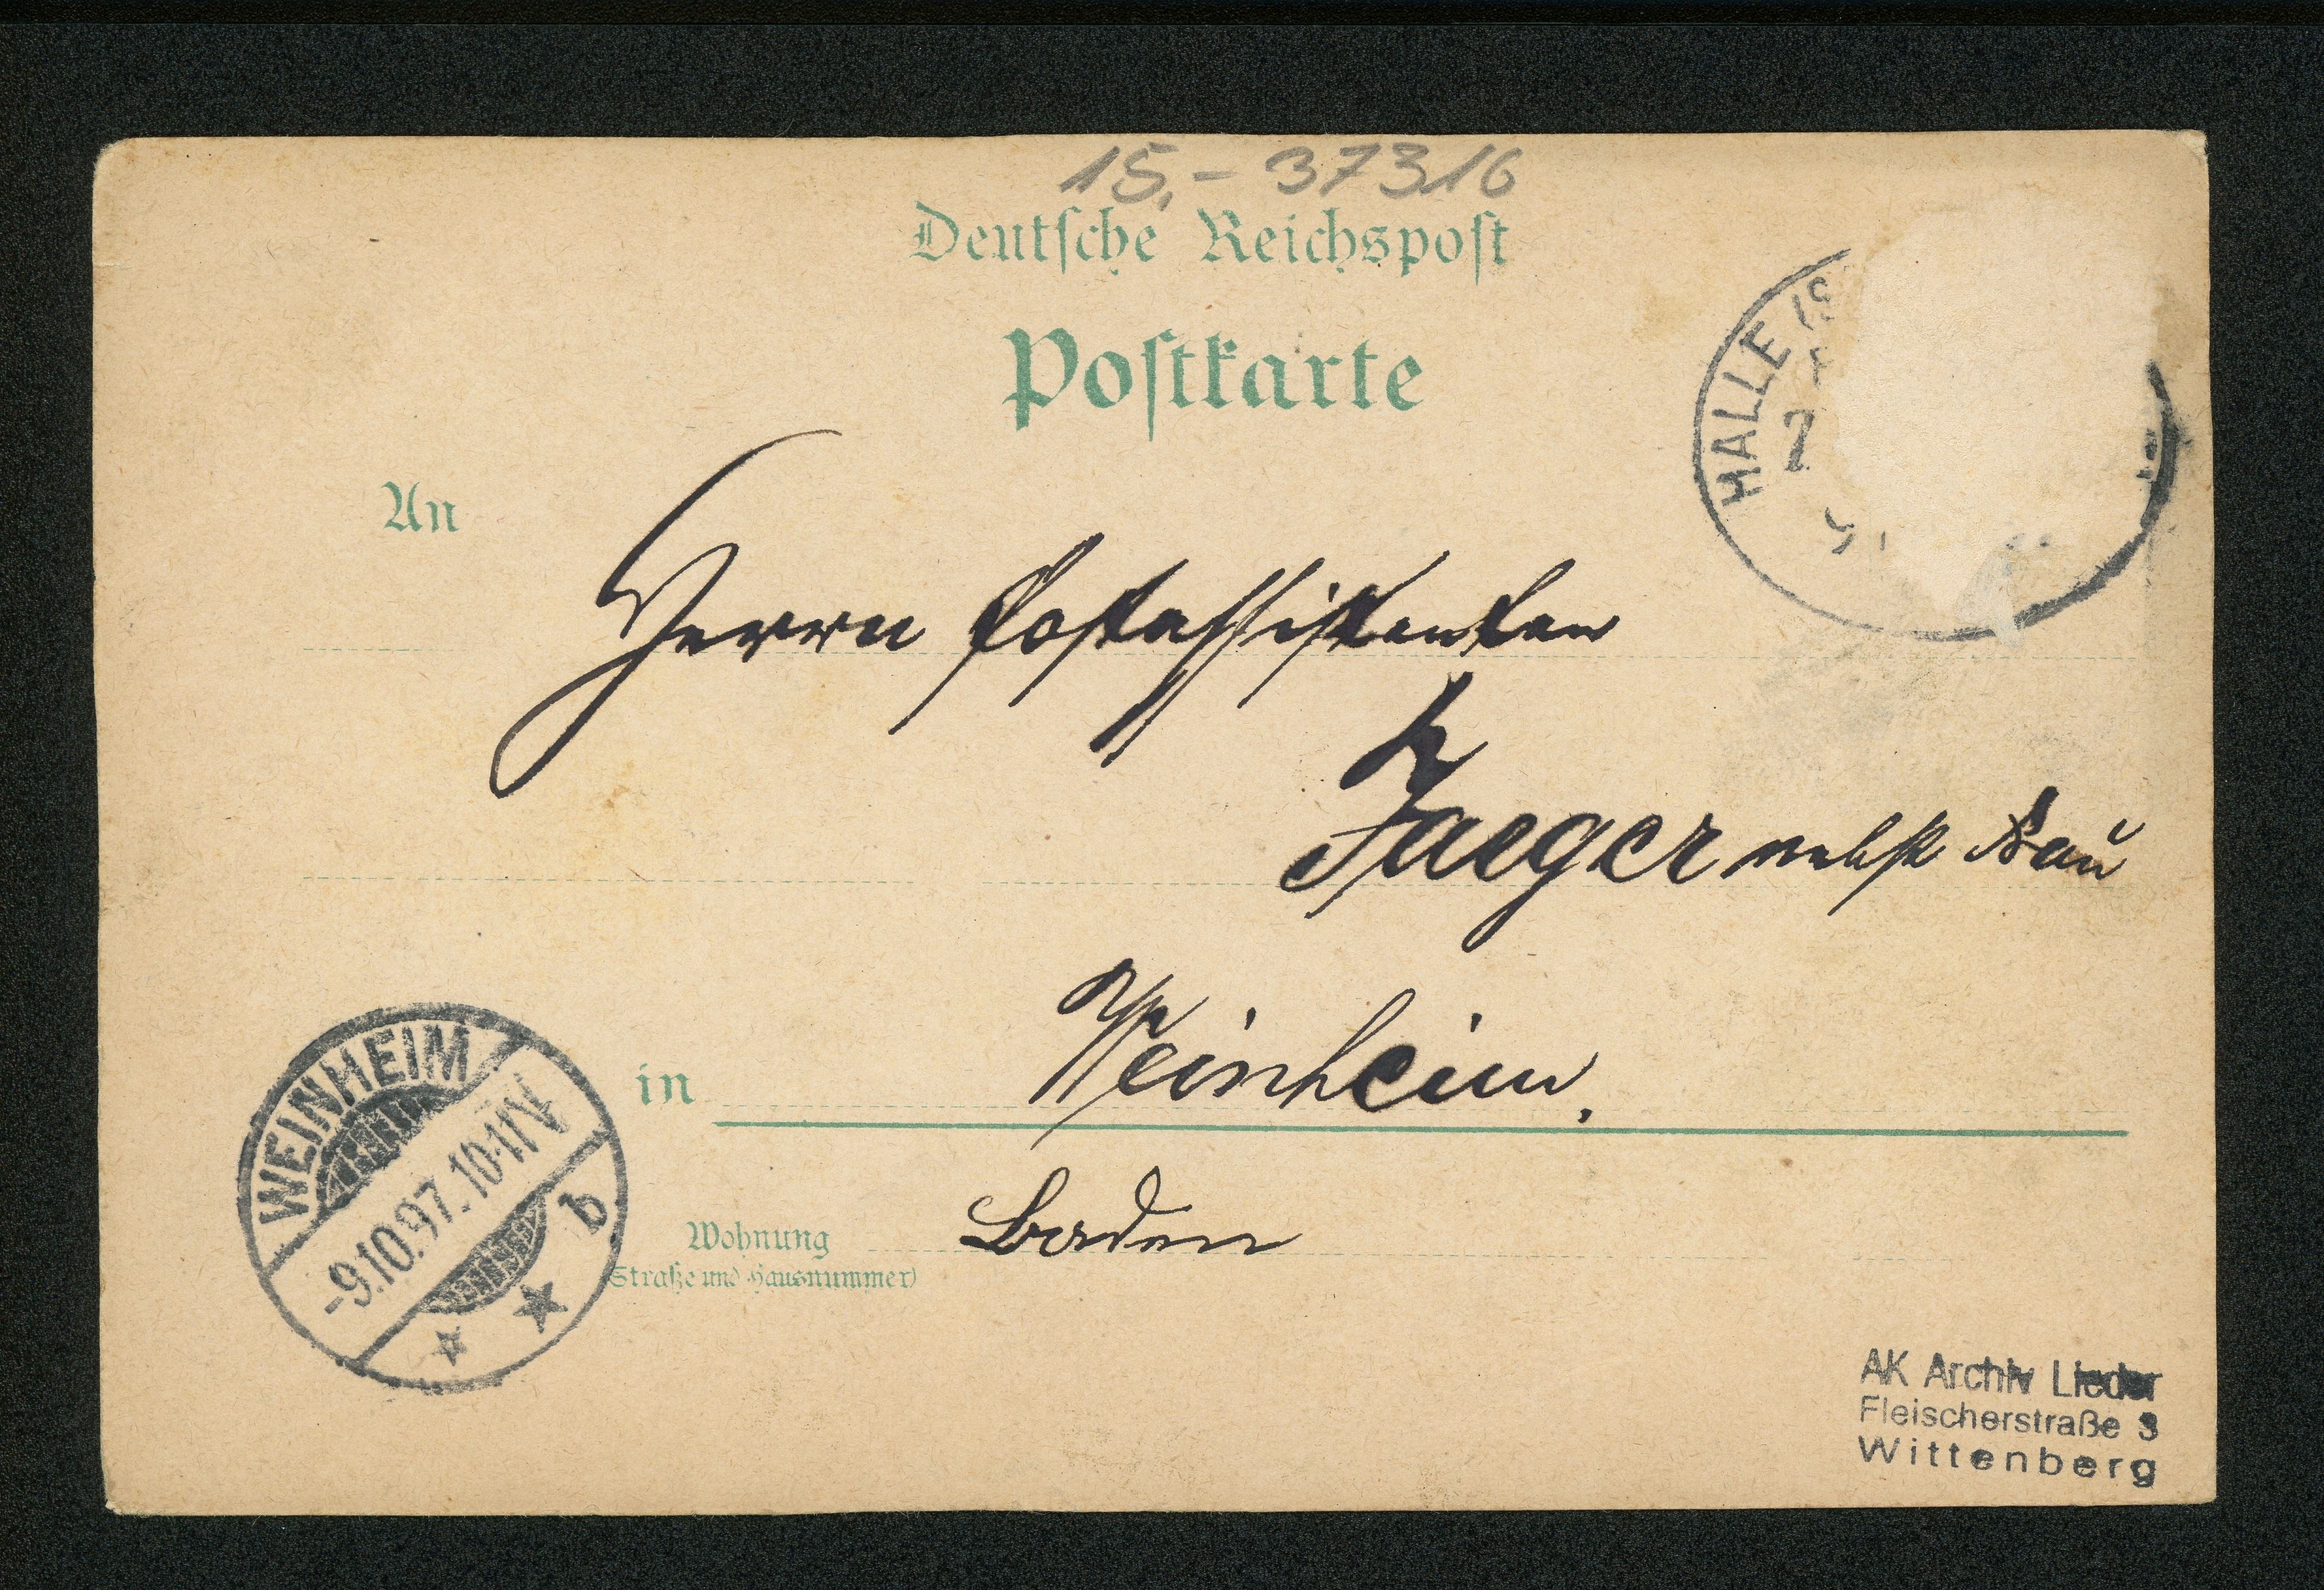 15,- 37316
Deutsche Reichspost
Postkarte
HALLE (S
7
An
Herrn Postassistenten
Jaeger nebst Frau
in Weinheim.
WEINHEIM
-9.10.97. 10-11V
b
Wohnung Baden
(Straße und Hausnummer)
AK Archiv Lieder
Fleischerstraße 3
Wittenberg